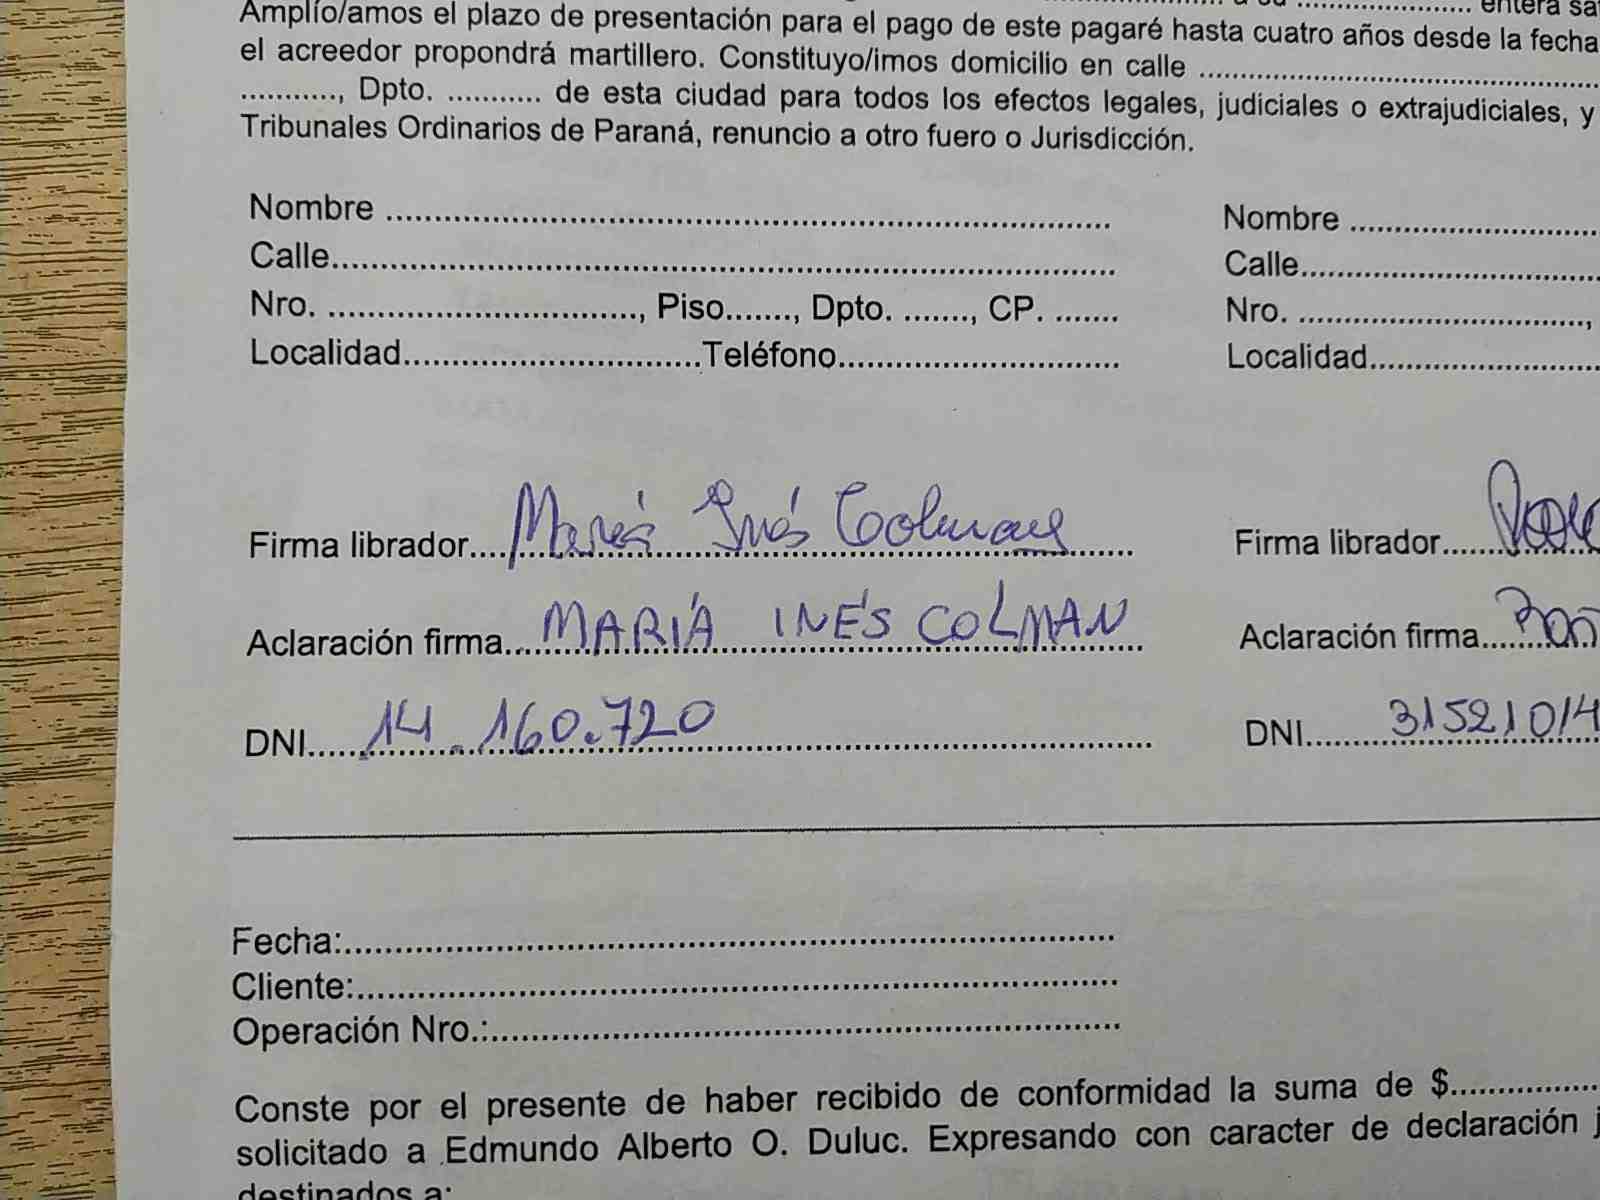 a su ........................ entera sa
Amplío/amos el plazo de presentación para el pago de este pagaré hasta cuatro años desde la fecha
el acreedor propondrá martillero. Constituyo/imos domicilio en calle ......................................................
..........., Dpto. ........... de esta ciudad para todos los efectos legales, judiciales o extrajudiciales, y
Tribunales Ordinarios de Paraná, renuncio a otro fuero o Jurisdicción.
Nombre ........................................................................... Nombre ............................
Calle................................................................................. Calle.................................
Nro. ................................, Piso......., Dpto. ......., CP. ....... Nro. ..............................,
Localidad...............................Teléfono............................. Localidad..........................
Firma librador.... María Inés Colman ....... Firma librador.......
Aclaración firma.. MARÍA INÉS COLMAN .. Aclaración firma......
DNI...... 14.160.720 ............................................. DNI.......... 31521014
Fecha:................................................................................
Cliente:...............................................................................
Operación Nro.:..................................................................
Conste por el presente de haber recibido de conformidad la suma de $................
solicitado a Edmundo Alberto O. Duluc. Expresando con caracter de declaración j
destinados a: